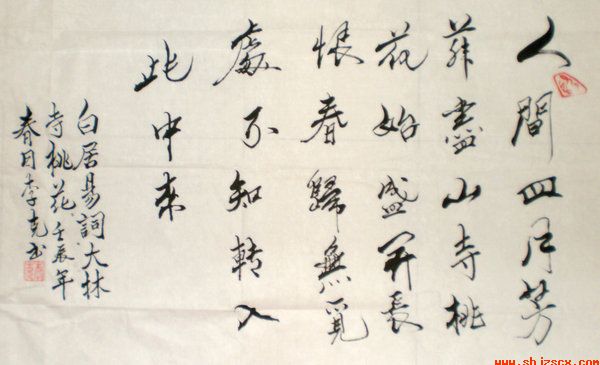 人間四月芳
菲盡山寺桃
花始盛开長
恨春歸無覓
處不知轉入
此中来
白居易詞大林
寺桃花壬辰年
春日李克书